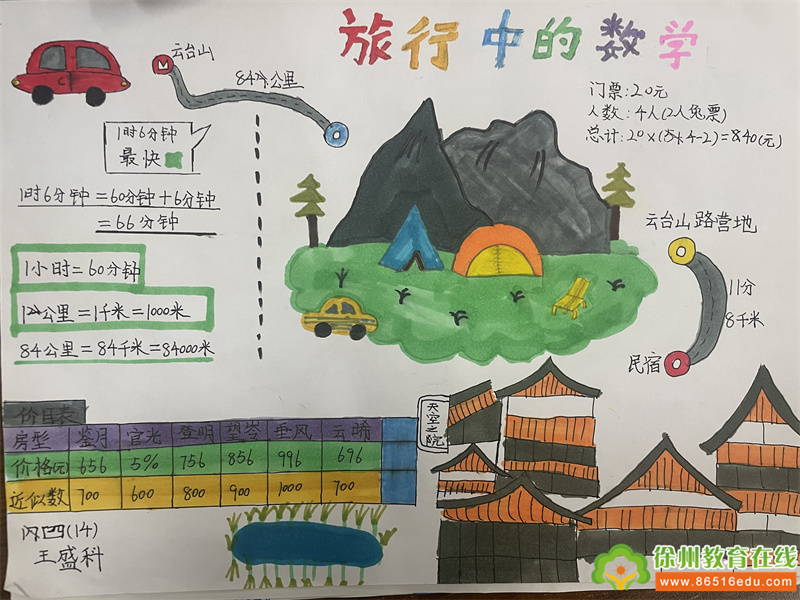 旅行中的数学
云台山
84个公里
门票:20元
人数:4人(2人免票)
总计:20×(4-2)=840(元)
1时6分钟
最快
1时6分钟=60分钟+6分钟
=66分钟
1小时=60分钟
1公里=1千米=1000米
84公里=84千米=84000米
云台山路营地
11分
8千米
民宿
价目表
房型 鉴月 宫光 登明 望岑 垂风 云晞
价格(元) 656 596 756 856 996 696
近似数 700 600 800 900 1000 700
天空之院
丙四(14)
王盛科
徐州教育在线
www.86516edu.com